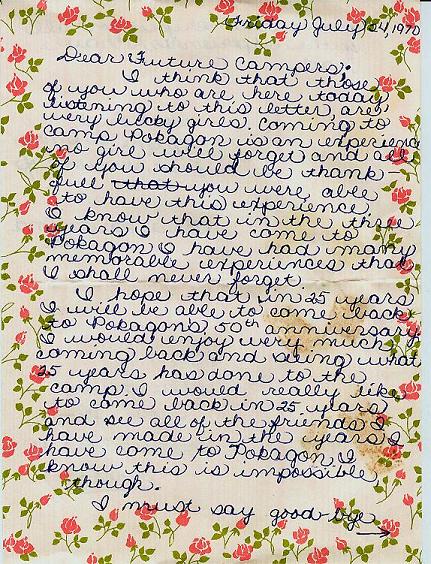 Friday July 24, 1970
Dear Future Campers,
I think that those
of you who are here today
listening to this letter, are
very lucky girls. Coming to
Camp Pokagon is an experience
no girl will forget and all
of you should be thank-
full that you were able
to have this experience.
I know that in the three
years I have come to
Pokagon I have had many
memorable experiences that
I shall never forget.
I hope that in 25 years
I will be able to come back
to Pokagon's 50th anniversary.
I would enjoy very much
coming back and seeing what
25 years has done to the
camp. I would really like
to come back in 25 years
and see all of the friends I
have made in the years I
have come to Pokagon. I
know this is impossible,
though.
I must say good-bye